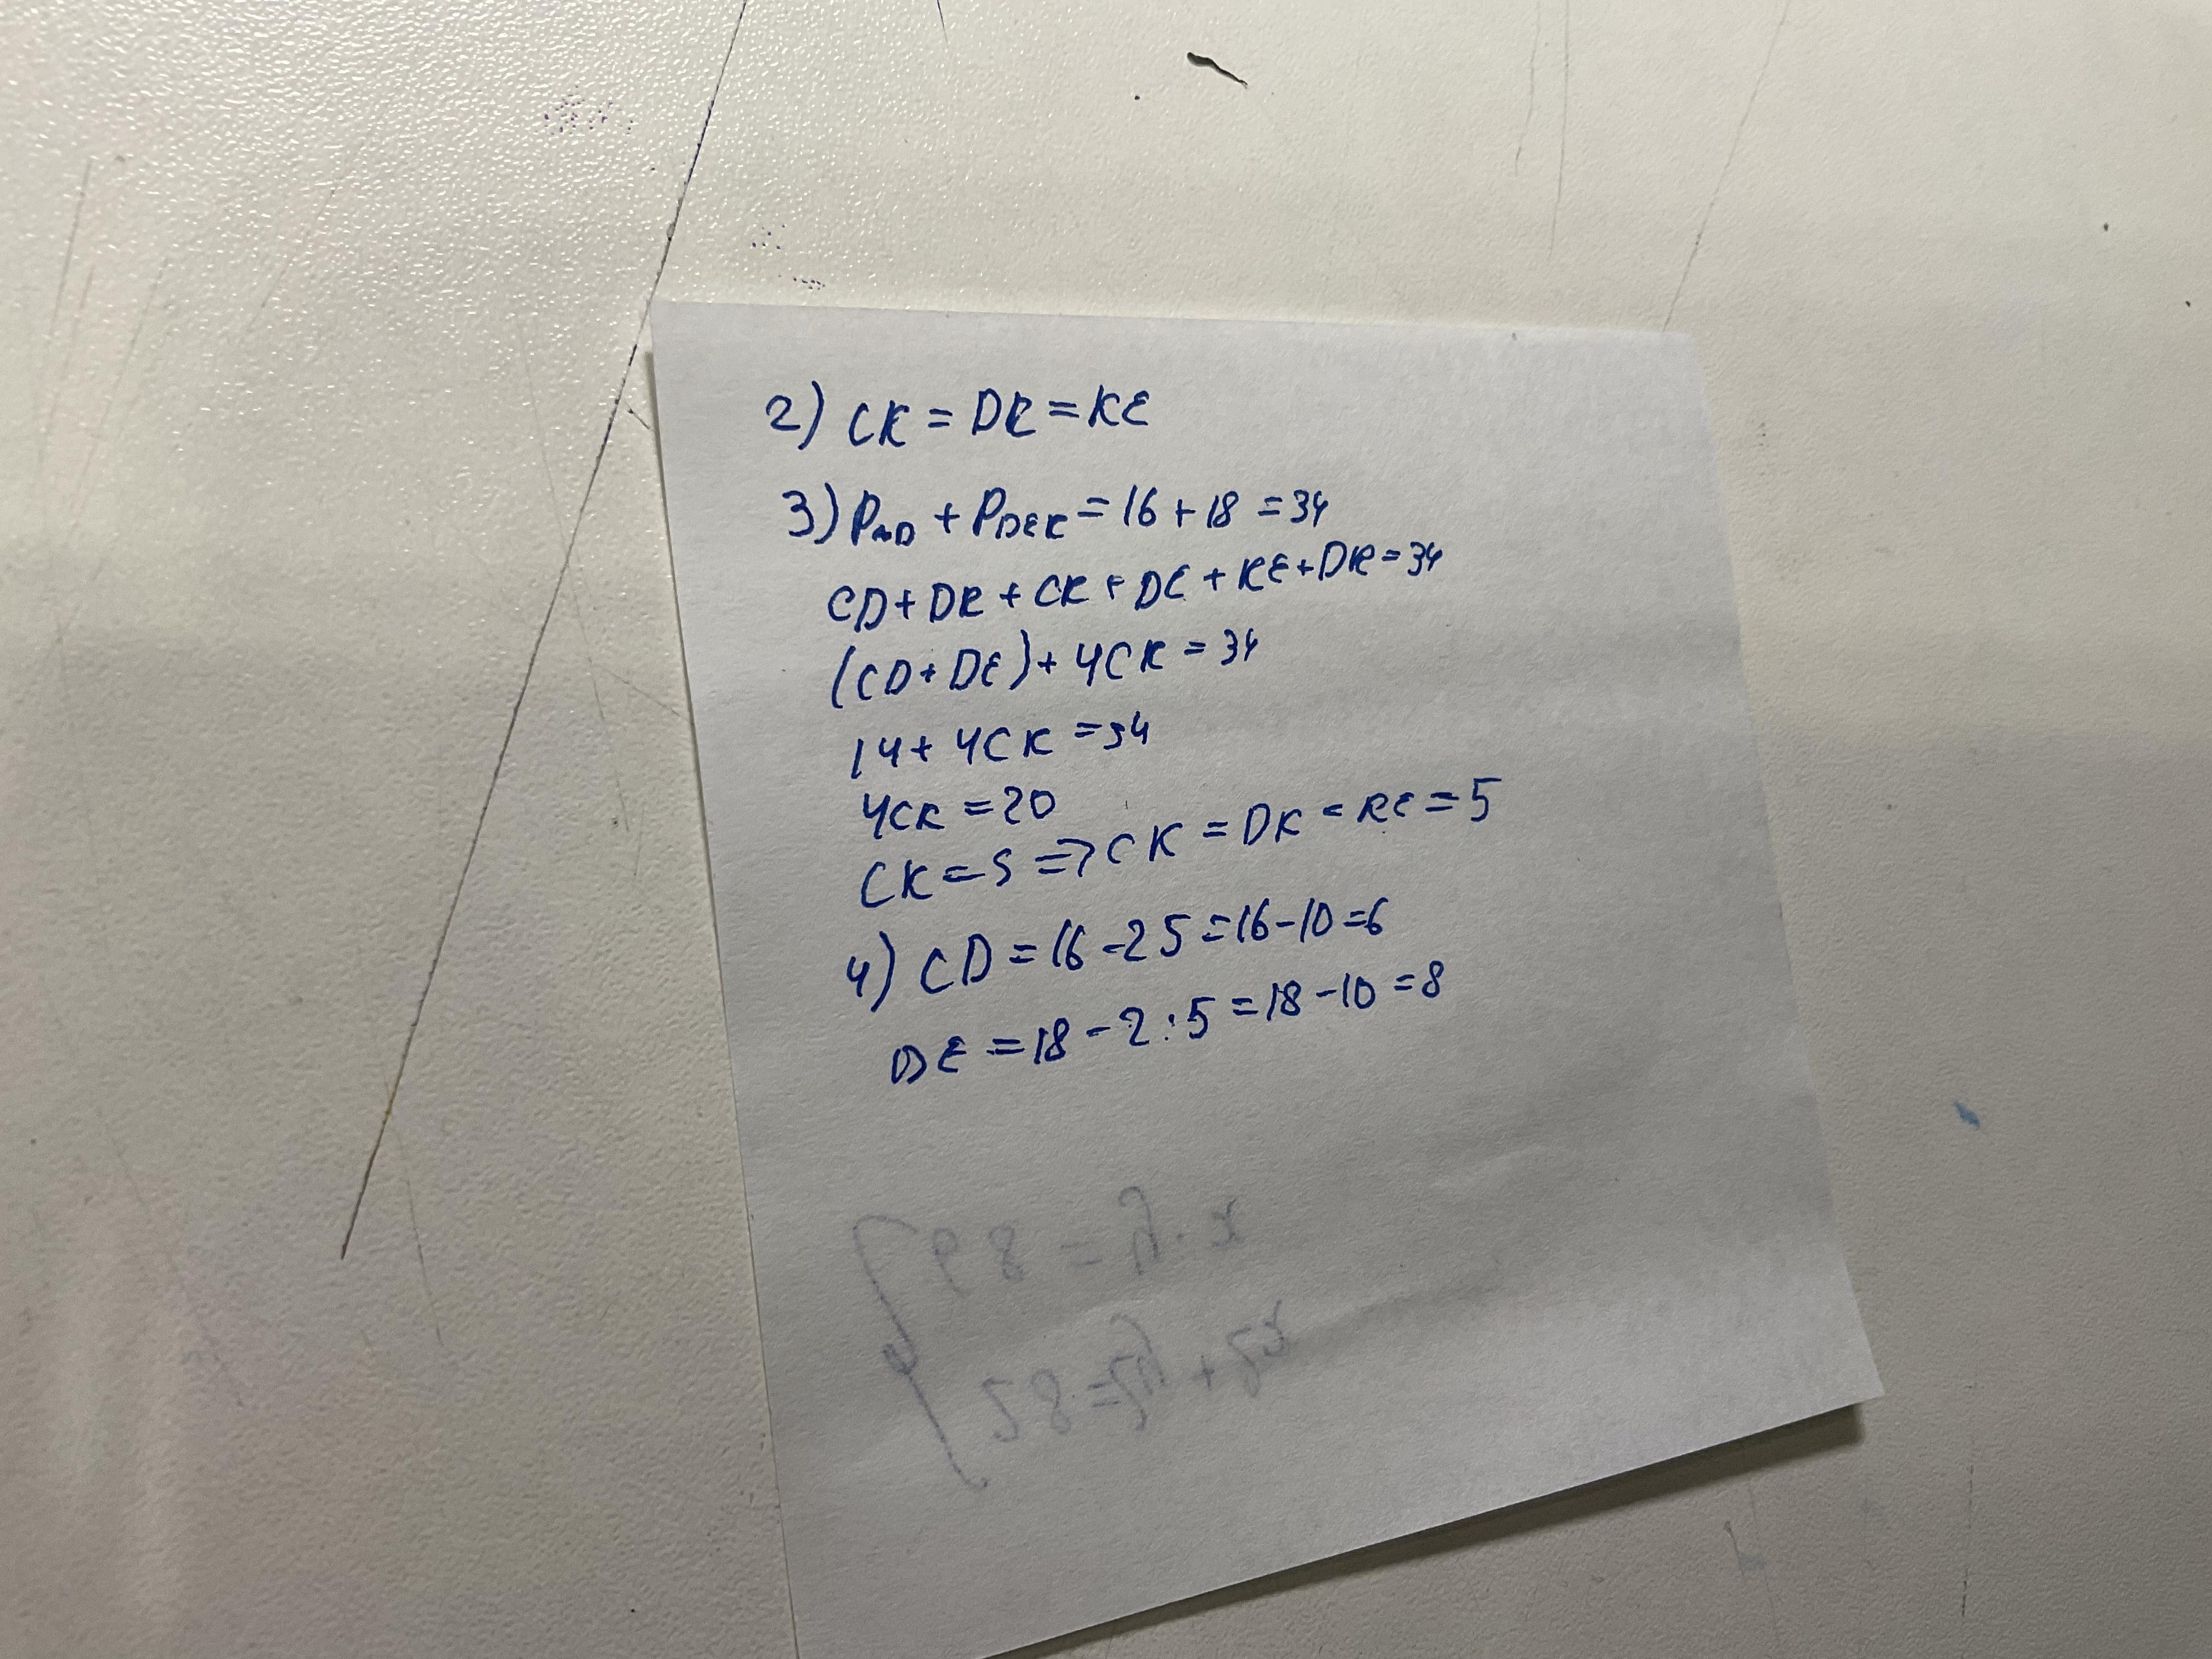 2) CK = DK = KE
3) P + P_DEK = 16 + 18 = 34
CD + DK + CK + DE + KE + DK = 34
(CD + DE) + 4CK = 34
14 + 4CK = 34
4CK = 20
CK = 5 => CK = DK = KE = 5
4) CD = 16 - 2 5 = 16 - 10 = 6
DE = 18 - 2 : 5 = 18 - 10 = 8
x · y = 89